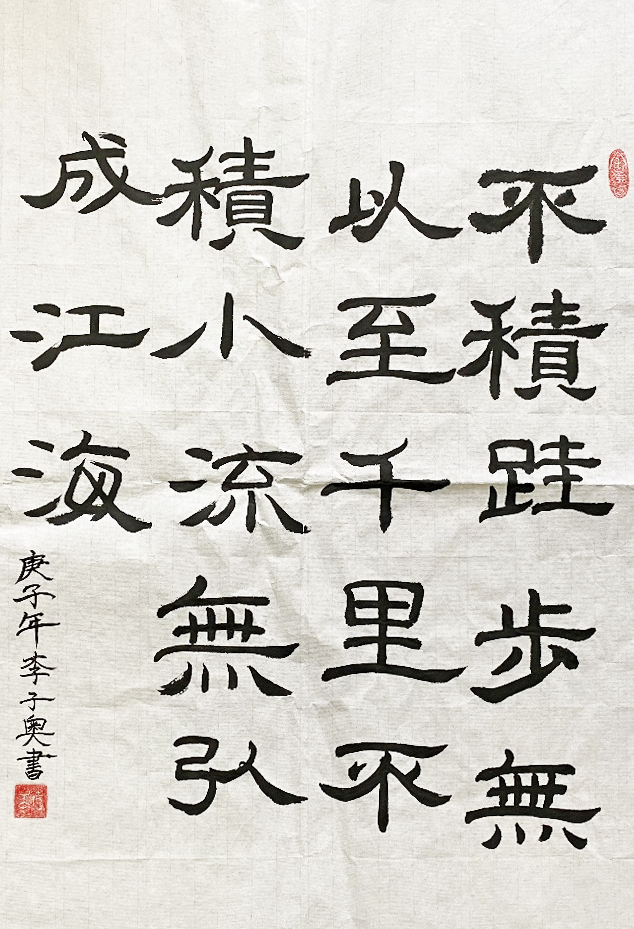 不積跬步無
以至千里不
積小流無以
成江海
庚子年李子奧書